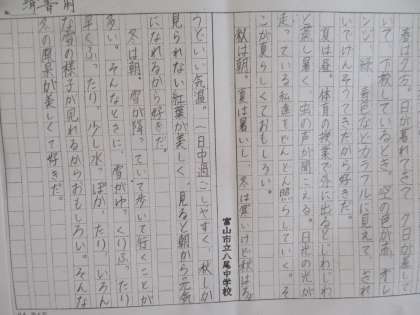 春は夕方。日が暮れてきて、夕日が差して
いて、下校しているとき、空の色が赤、オレ
ンジ、緑、黄色などカラフルに見えて、それ
夏は昼。体育の授業で外に出るとじわじわ
と蒸し暑く、虫の声が聞こえる。日光の光が
走っている私達をどんどん照らしていく。そ
こが夏らしくておもしろい。
秋は朝。夏は暑いし、冬は寒いけど秋はち
富山市立八尾中学校
うどいい気温。一日中過ごしやすく、秋しか
見られない紅葉が美しく、見ると朝から元気
になれるから好きだ。
冬は朝。雪が降っていて歩いて行くことが
多い。そんなときに、雪がゆっくりふったり
早くふったり、少し水っぽかったり、いろん
な雪の様子が見れるからおもしろい。そんな
冬の風景が美しくて好きだ。